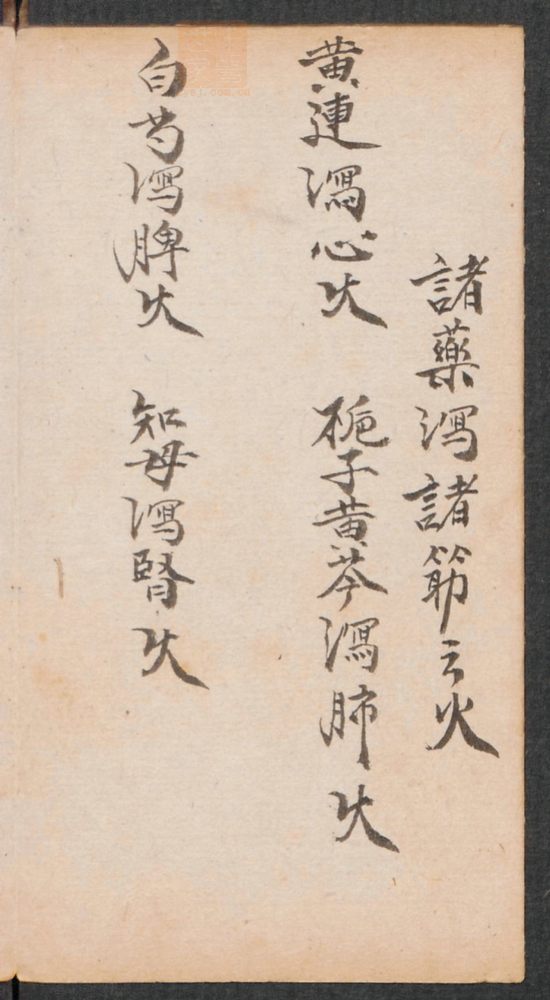 諸藥瀉諸筋之火
黄連瀉心火 梔子黄芩瀉肺火
白芍瀉脾火 知母瀉腎火